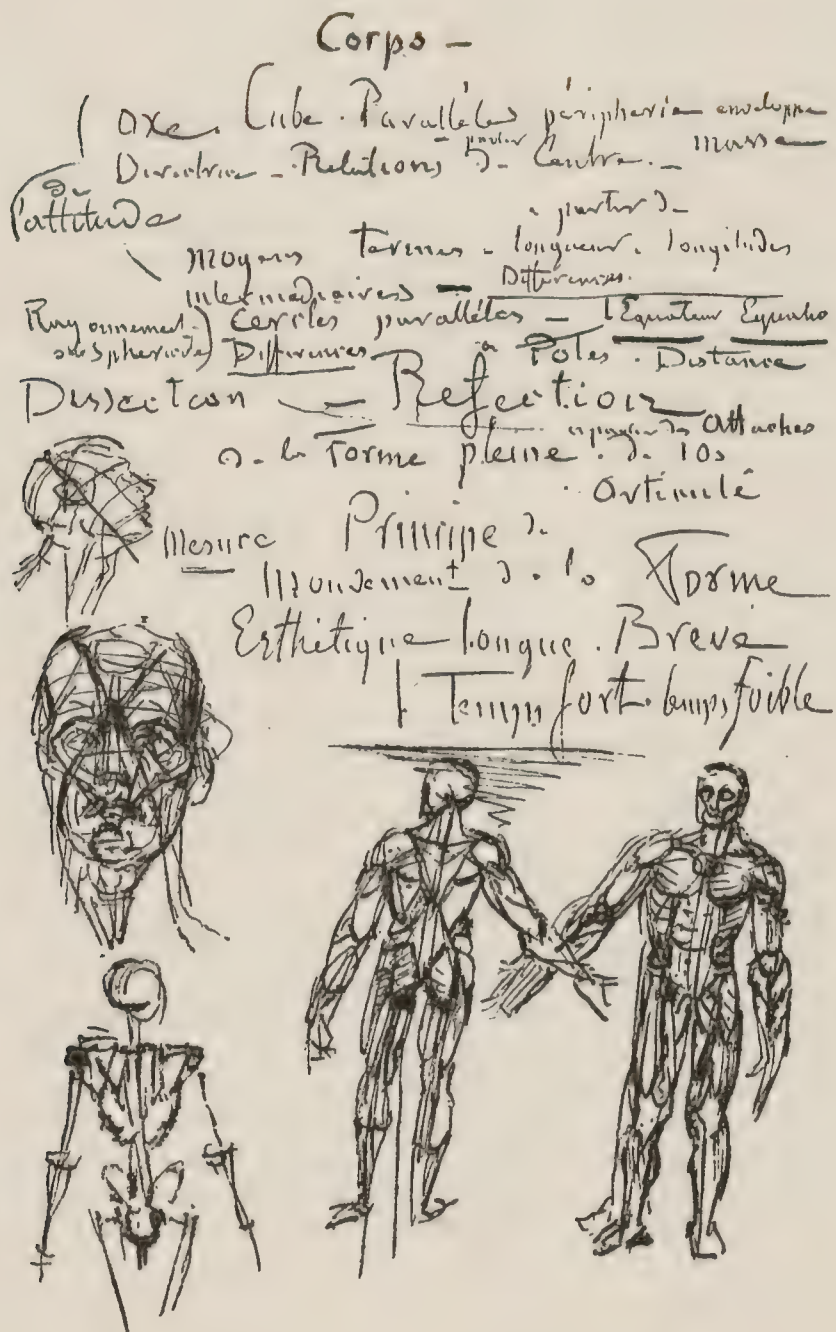 Corps –
axe. Cube. Parallèles périphérie enveloppe
Directrice – Relations – partir d. Centre. – masse
de
l'attitude
à partir d–
moyens termes – longueur. longitudes
intermédiaires – Différences.
Rayonnement. Cercles parallèles – l'Equateur
Différences à Pôles. Distance
Dissection – Réfection
attaches
d. la Forme pleine. d. l'os
Articulé
Mesure Principe d.
mouvement d. la Forme
Esthétique longue. Brève
Temps fort. temps faible